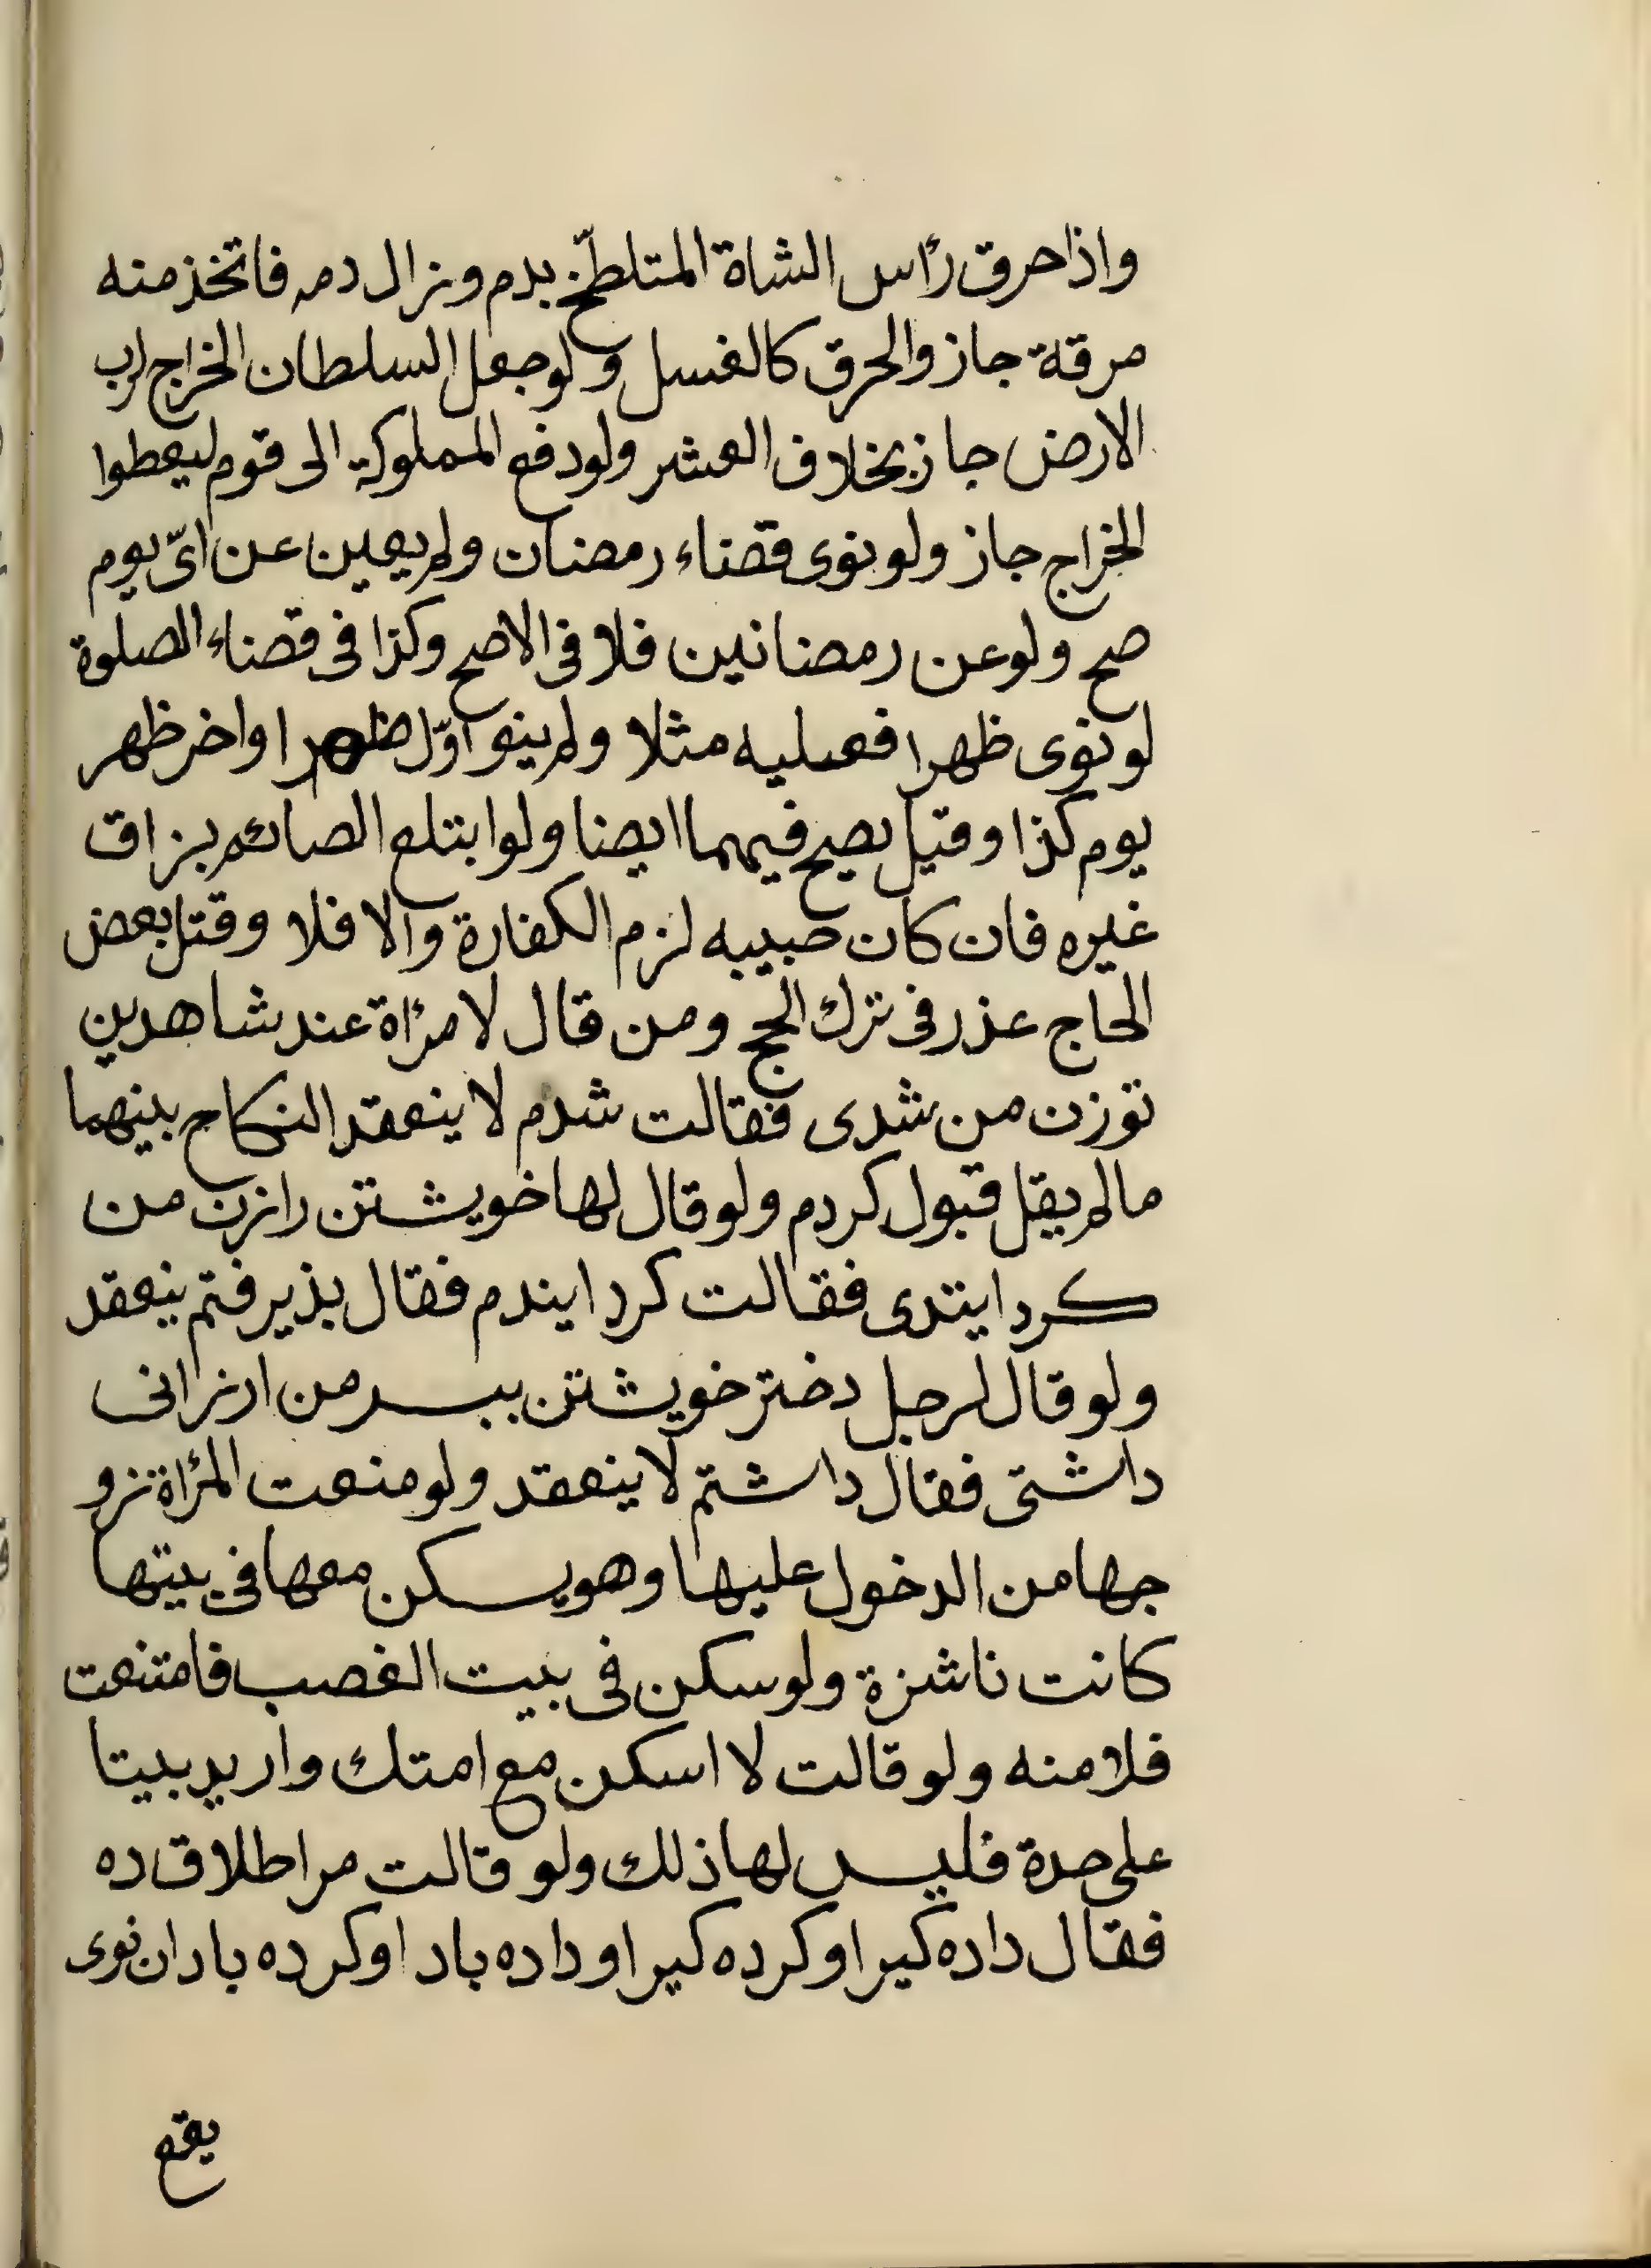 واذا حرق رأس الشاة المتلطّخ بدم وزال دمه فاتخذ منه
مرقة جاز والحرق كالغسل ولو جعل السلطان الخراج لرب
الارض جاز بخلاف العشر ولو دفع المملوكة الى قوم ليعطوا
الخراج جاز ولو نوى قضاء رمضان ولم يعين عن اىّ يوم
صح ولو عن رمضانين فلا فى الاصح وكذا فى قضاء الصلوة
لو نوى ظهرا فعليه مثلا ولم ينو اوّل ظهر او اخر ظهر
يوم كذا وقيل يصح فيهما ايضا ولو ابتلع الصائم بزاق
غيره فان كان حبيبه لزم الكفارة والا فلا وقتل بعض
الحاج عذر فى ترك الحج ومن قال لامرأة عند شاهدين
تو زن من شدى فقالت شدم لا ينعقد النكاح بينهما
ما لم يقل قبول كردم ولو قال لها خويشتن را زن من
كردايندى فقالت كردايندم فقال بذيرفتم ينعقد
ولو قال لرجل دختر خويشتن ببسر من ارزانى
داشتى فقال داشتم لا ينعقد ولو منعت المرأة زو
جها من الدخول عليها وهو يسكن معها فى بيتها
كانت ناشزة ولو سكن فى بيت الغصب فامتنعت
فلا منه ولو قالت لا اسكن مع امتك واريد بيتا
على حدة فليس لها ذلك ولو قالت مرا طلاق ده
فقال داده كير او كرده كير او داده باد او كرده باد ان نوى
يقع